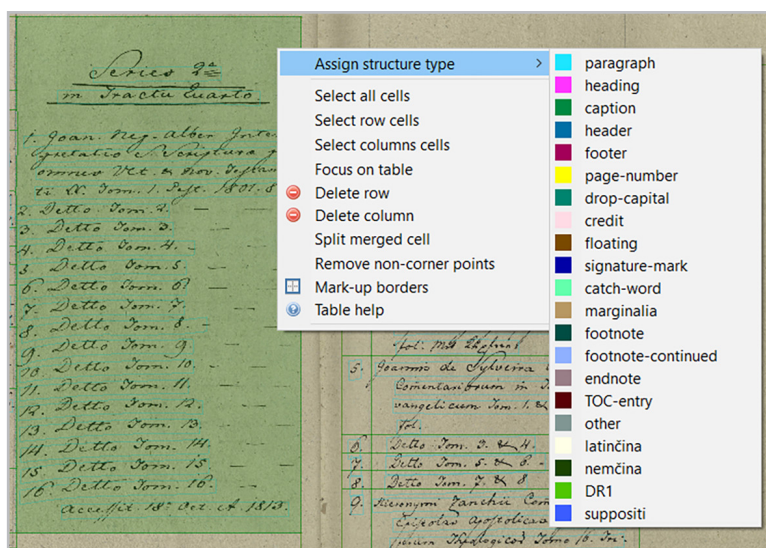 Series 2ᵃ
in Tractu Quarto.
1. Joan. Nep. Alber Inter
pretatio S. Scriptura
omnes Vet. & Nov. Testam
ti 8. Tom. 1. Pest. 1801. 8
2. Detto Tom. 2. —
3. Detto Tom. 3. —
4. Detto Tom. 4. — —
5 Detto Tom. 5. — —
6. Detto Tom. 6. — —
7. Detto Tom. 7. — —
8. Detto Tom. 8. — —
9. Detto Tom. 9. — —
10. Detto Tom. 10. — —
11. Detto Tom. 11. — —
12. Detto Tom. 12. — —
13 Detto Tom. 13. — —
14. Detto Tom. 14. — —
15 Detto Tom. 15. — —
16. Detto Tom. 16.
accessit 18ᵃ Oct. A 1813.
Assign structure type
Select all cells
Select row cells
Select columns cells
Focus on table
Delete row
Delete column
Split merged cell
Remove non-corner points
Mark-up borders
Table help
paragraph
heading
caption
header
footer
page-number
drop-capital
credit
floating
signature-mark
catch-word
marginalia
footnote
footnote-continued
endnote
TOC-entry
other
latinčina
nemčina
DR1
suppositi
fol.
5. Joannis de Sylveira
Comentariorum in
vangelicum Tom. 1. &
fol.
6. Detto Tom. 3. & 4.
7. Detto Tom. 5. & 6. -
8. Detto Tom. 7. & 8
9. Hieronymi Zanchii Com
Epistolas apostolicas
Theologicos Tomo